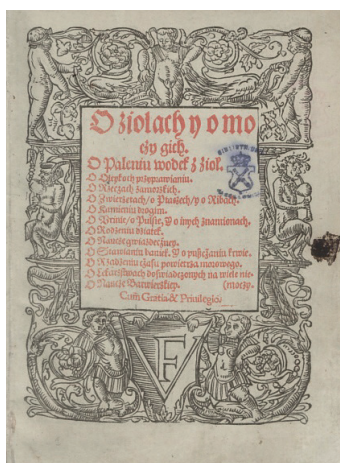 O ziolach y o mo
czy gich.
O Paleniu wodek z ziol.
O Oleykoch przyprawianiu.
O Rzeczach zamorskich.
O Zwierzetach/ o Ptaszech/ y o Ribach.
O Kamieniu drogim.
O Urinie/ o Pulsie, Y o inych znamionach.
O Rodzeniu dziatek.
O Nauce gwiazdeczney.
O Stawianiu baniek. Y o pusczaniu krwie.
O Rządzeniu czasu powietrza morowego.
O Lekarstwach doswiadczonych na wiele nie-
O Nauce Barwierskiey. (moczy.
Cum Gratia & Privilegio.
FV